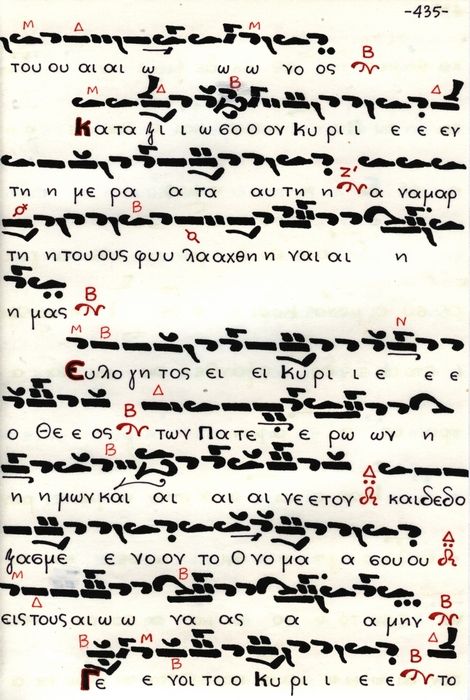 -435-
του ου αι αι ω ω ω νο ος
Κατα ξι ι ω σο ο ον Κυ ρι ι ε ε εν
τη η με ρα α τα αυ τη η α ναμαρ
τη η του ους φυυ λα αχθη η ναι αι η
η μας
Ευλο γη τος ει ει Κυ ρι ι ε ε ε
ο Θε ε ος των Πατε ε ρω ων η
η η μων και αι αι αι νε ετον και δεδο
ξασμε ε νο ον το Ονομα α σου ου
εις τους αι ω ω να ας α α μην
Γε ε νοι το ο Κυ ρι ι ε ε το